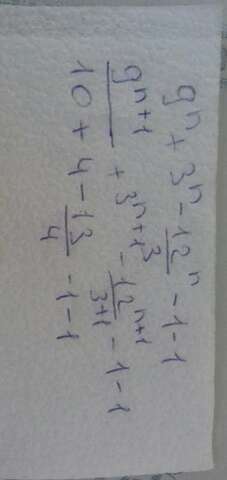 9ⁿ + 3ⁿ - 12ⁿ - 1 - 1
9ⁿ⁺¹ + 3ⁿ⁺¹ 3 - 12ⁿ⁺¹/3+1 - 1 - 1
10 + 4 - 13/4 - 1 - 1